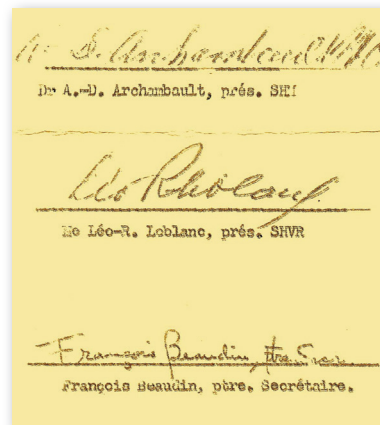 A. D. Archambault
Dr A.-D. Archambault, prés. SHM
Léo R Leblanc
Me Léo-R. Leblanc, prés. SHVR
François Beaudin, ptre Secr.
François Beaudin, ptre. Secrétaire.